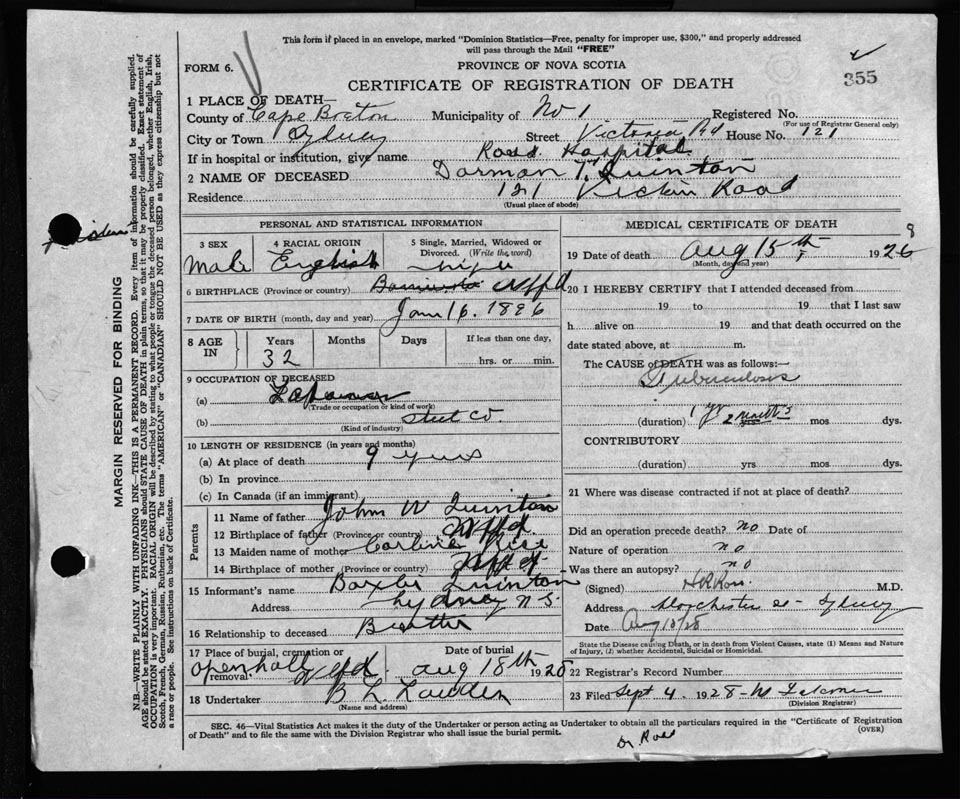 This form if placed in an envelope, marked "Dominion Statistics—Free, penalty for improper use, $300," and properly addressed
will pass through the Mail "FREE"
FORM 6.
PROVINCE OF NOVA SCOTIA
355
CERTIFICATE OF REGISTRATION OF DEATH
1 PLACE OF DEATH—
County of Cape Breton Municipality of No 1 Registered No.
(For use of Registrar General only)
City or Town Sydney Street Victoria Rd House No. 121
If in hospital or institution, give name Ross Hospital
2 NAME OF DECEASED Dorman T. Quinton
Residence 121 Road
(Usual place of abode)
PERSONAL AND STATISTICAL INFORMATION
3 SEX
Male
4 RACIAL ORIGIN
English
5 Single, Married, Widowed or
Divorced. (Write the word)
6 BIRTHPLACE (Province or country) Nfld
7 DATE OF BIRTH (month, day and year) Jan 16. 1896
8 AGE IN
Years Months Days If less than one day,
32 hrs. or min.
9 OCCUPATION OF DECEASED
(a)
(Trade or occupation or kind of work)
(b) Steel Co.
(Kind of industry)
10 LENGTH OF RESIDENCE (in years and months)
(a) At place of death 9 years
(b) In province
(c) In Canada (if an immigrant)
Parents
11 Name of father John W Quinton
12 Birthplace of father (Province or country) Nfld.
13 Maiden name of mother
14 Birthplace of mother (Province or country) Nfld.
15 Informant's name Quinton
Address Sydney N.S.
16 Relationship to deceased Brother
17 Place of burial, cremation or
removal. Openhall Nfld.
Date of burial
Aug 18th 1928
18 Undertaker B. L.
(Name and address)
MEDICAL CERTIFICATE OF DEATH
8
19 Date of death Aug 15th 1926
(Month, day and year)
20 I HEREBY CERTIFY that I attended deceased from
19 to 19 that I last saw
h alive on 19 and that death occurred on the
date stated above, at m.
The CAUSE of DEATH was as follows:—
Tuberculosis
(duration) 1 yr 2 months mos dys.
CONTRIBUTORY
(duration) yrs mos dys.
21 Where was disease contracted if not at place of death?
Did an operation precede death? no Date of
Nature of operation no
Was there an autopsy? no
(Signed) Ross. M.D.
Address Dorchester St- Sydney
Date Aug /28
State the Disease causing Death, or in death from Violent Causes, state (1) Means and Nature
of Injury, (2) whether Accidental, Suicidal or Homicidal.
22 Registrar's Record Number
23 Filed Sept 4. 1928
(Division Registrar)
SEC. 46—Vital Statistics Act makes it the duty of the Undertaker or person acting as Undertaker to obtain all the particulars required in the "Certificate of Registration
of Death" and to file the same with the Division Registrar who shall issue the burial permit.
(OVER)
Dr. Ross
MARGIN RESERVED FOR BINDING
N.B.—WRITE PLAINLY WITH UNFADING INK—THIS IS A PERMANENT RECORD. Every item of information should be carefully supplied.
AGE should be stated EXACTLY. PHYSICIANS should STATE CAUSE OF DEATH in plain terms, so that it may be properly classified. Exact statement of
OCCUPATION is very important. RACIAL ORIGIN will be described by stating to what people or tongue the deceased person belonged, whether English, Irish,
Scotch, French, German, Russian, Ruthenian, etc. The terms "AMERICAN" or "CANADIAN" SHOULD NOT BE USED as they express citizenship but not
a race or people. See instructions on back of Certificate.